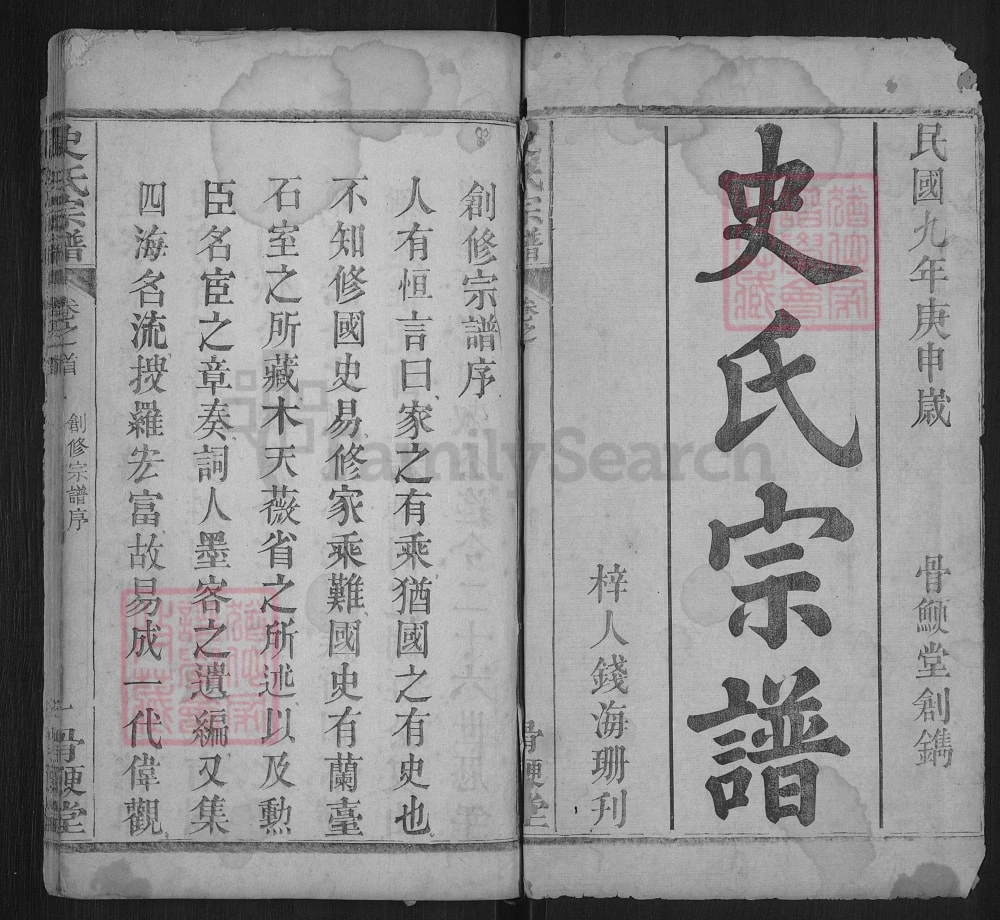 民國九年庚申歲
骨鯁堂創鐫
史氏宗譜
梓人錢海珊刊
創修宗譜序
人有恒言曰家之有乘猶國之有史也
不知修國史易修家乘難國史有蘭臺
石室之所藏木天薇省之所述以及勲
臣名宦之章奏詞人墨客之遺編又集
四海名流搜羅宏富故易成一代偉觀
史氏宗譜
卷之首
創修宗譜序
骨鯁堂
FamilySearch